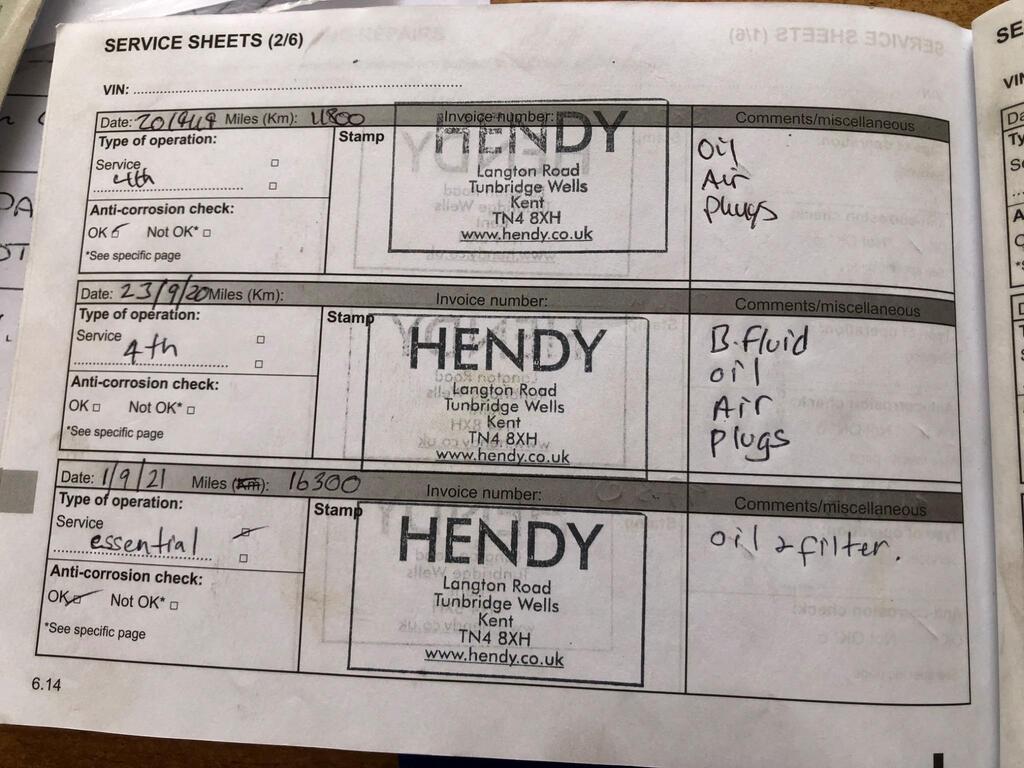 SERVICE SHEETS (2/6)
VIN:
Date: 20/9/19 Miles (Km): 11800 Invoice number: Comments/miscellaneous
Type of operation:
Service
4th
Anti-corrosion check:
OK Not OK*
*See specific page
Stamp
HENDY
Langton Road
Tunbridge Wells
Kent
TN4 8XH
www.hendy.co.uk
Oil
Air
Plugs
Date: 23/9/20 Miles (Km): Invoice number: Comments/miscellaneous
Type of operation:
Service
4th
Anti-corrosion check:
OK Not OK*
*See specific page
Stamp
HENDY
Langton Road
Tunbridge Wells
Kent
TN4 8XH
www.hendy.co.uk
B.fluid
oil
Air
plugs
Date: 1/9/21 Miles (Km): 16300 Invoice number: Comments/miscellaneous
Type of operation:
Service
essential
Anti-corrosion check:
OK Not OK*
*See specific page
Stamp
HENDY
Langton Road
Tunbridge Wells
Kent
TN4 8XH
www.hendy.co.uk
oil & filter.
6.14